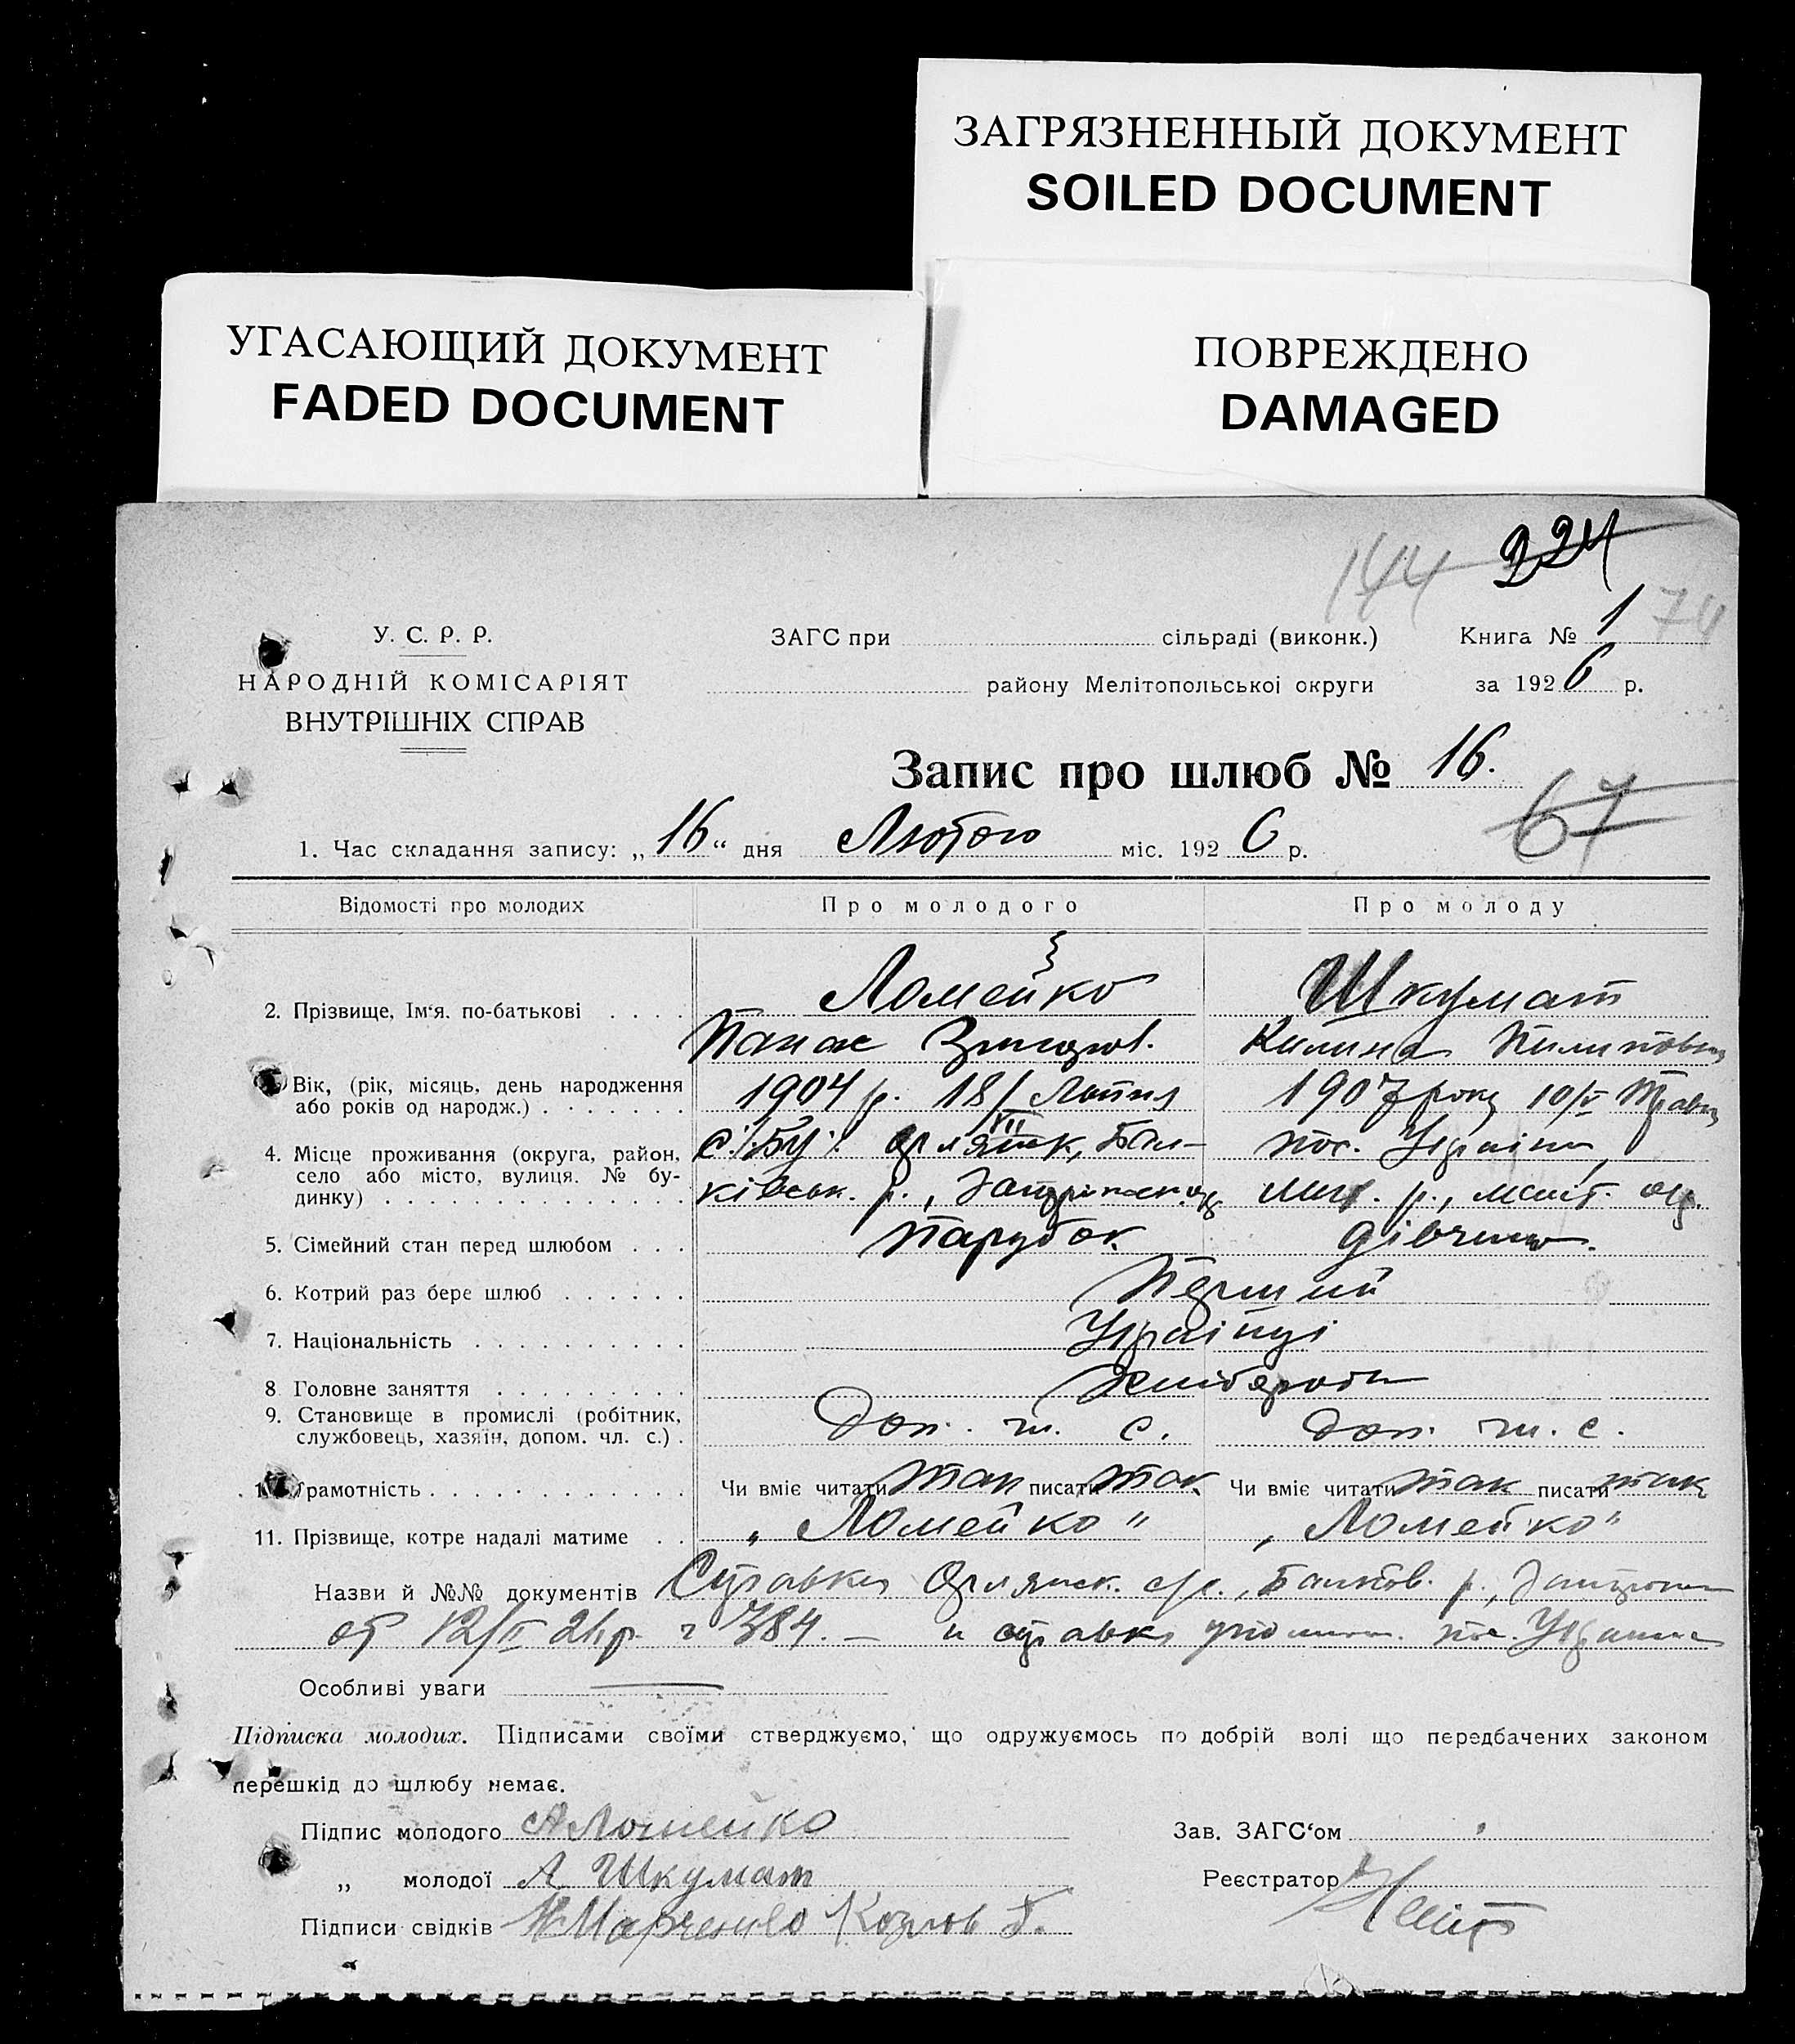 ЗАГРЯЗНЕННЫЙ ДОКУМЕНТ
SOILED DOCUMENT
УГАСАЮЩИЙ ДОКУМЕНТ
FADED DOCUMENT
ПОВРЕЖДЕНО
DAMAGED
144 224
У. С. Р. Р.
НАРОДНІЙ КОМІСАРІЯТ
ВНУТРІШНІХ СПРАВ
ЗАГС при сільраді (виконк.) Книга № 1 74
району Мелітопольської округи за 1926 р.
Запис про шлюб № 16.
67
1. Час складання запису: „16“ дня Лютого міс. 1926 р.
Відомості про молодих Про молодого Про молоду
2. Прізвище, Ім'я. по-батькові Ломейко Шкумат
Панас Григоров. Килина Пилиповна
Вік, (рік, місяць, день народження або років од народж.) 1904 р. 18/VII Липня 1907 року 10/V Травня
4. Місце проживання (округа, район, село або місто, вулиця. № будинку)
с. Орлянск, Бал-
ківськ. р., Запоріжськ. ок. пос. Україна,
р., меліт. окр.
5. Сімейний стан перед шлюбом Парубок дівчина.
6. Котрий раз бере шлюб Перший
7. Національність Українці
8 Головне заняття Хлібороби
9. Становище в промислі (робітник, службовець, хазяїн, допом. чл. с.) Доп. ч. с. Доп. ч. с.
Грамотність Чи вміє читати так писати так Чи вміє читати так писати так
11. Прізвище, котре надалі матиме „Ломейко" „Ломейко"
Назви й №№ документів Справка Орлянск. с/р., Балков. р.,
от 12/II 26 р. 384. — и справка пос. Украина
Особливі уваги
Підписка молодих. Підписами своїми стверджуємо, що одружуємось по добрій волі що передбачених законом
перешкід до шлюбу немає.
Підпис молодого А Ломейко Зав. ЗАГС'ом
„ молодої А Шкумат Реєстратор
Підписи свідків Марченко Козлов